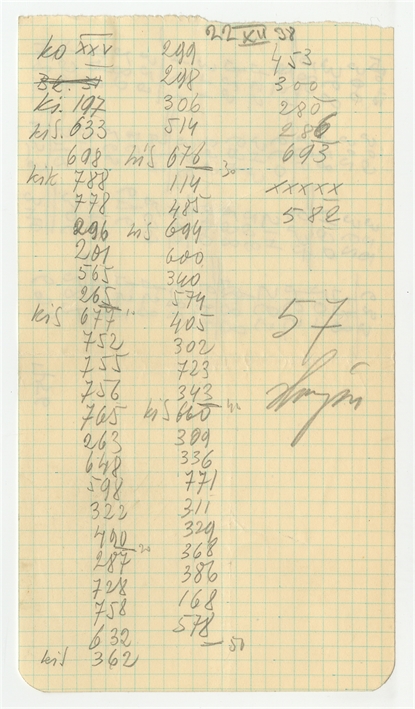 22 XII 38
ko XXV
ki. 197
kiš. 633
698
kik 788
778
296
201
565
265
kiš 677
752
755
756
765
263
648
598
322
490
287 20
728
758
632
kiš 362
299
298
306
514
kiš 676
30
114
485
kiš 694
600
340
574
405
302
723
343
kiš 660
399
336
771
311
329
368
386
168
578
50
453
300
280
286
693
xxxxx
582
57